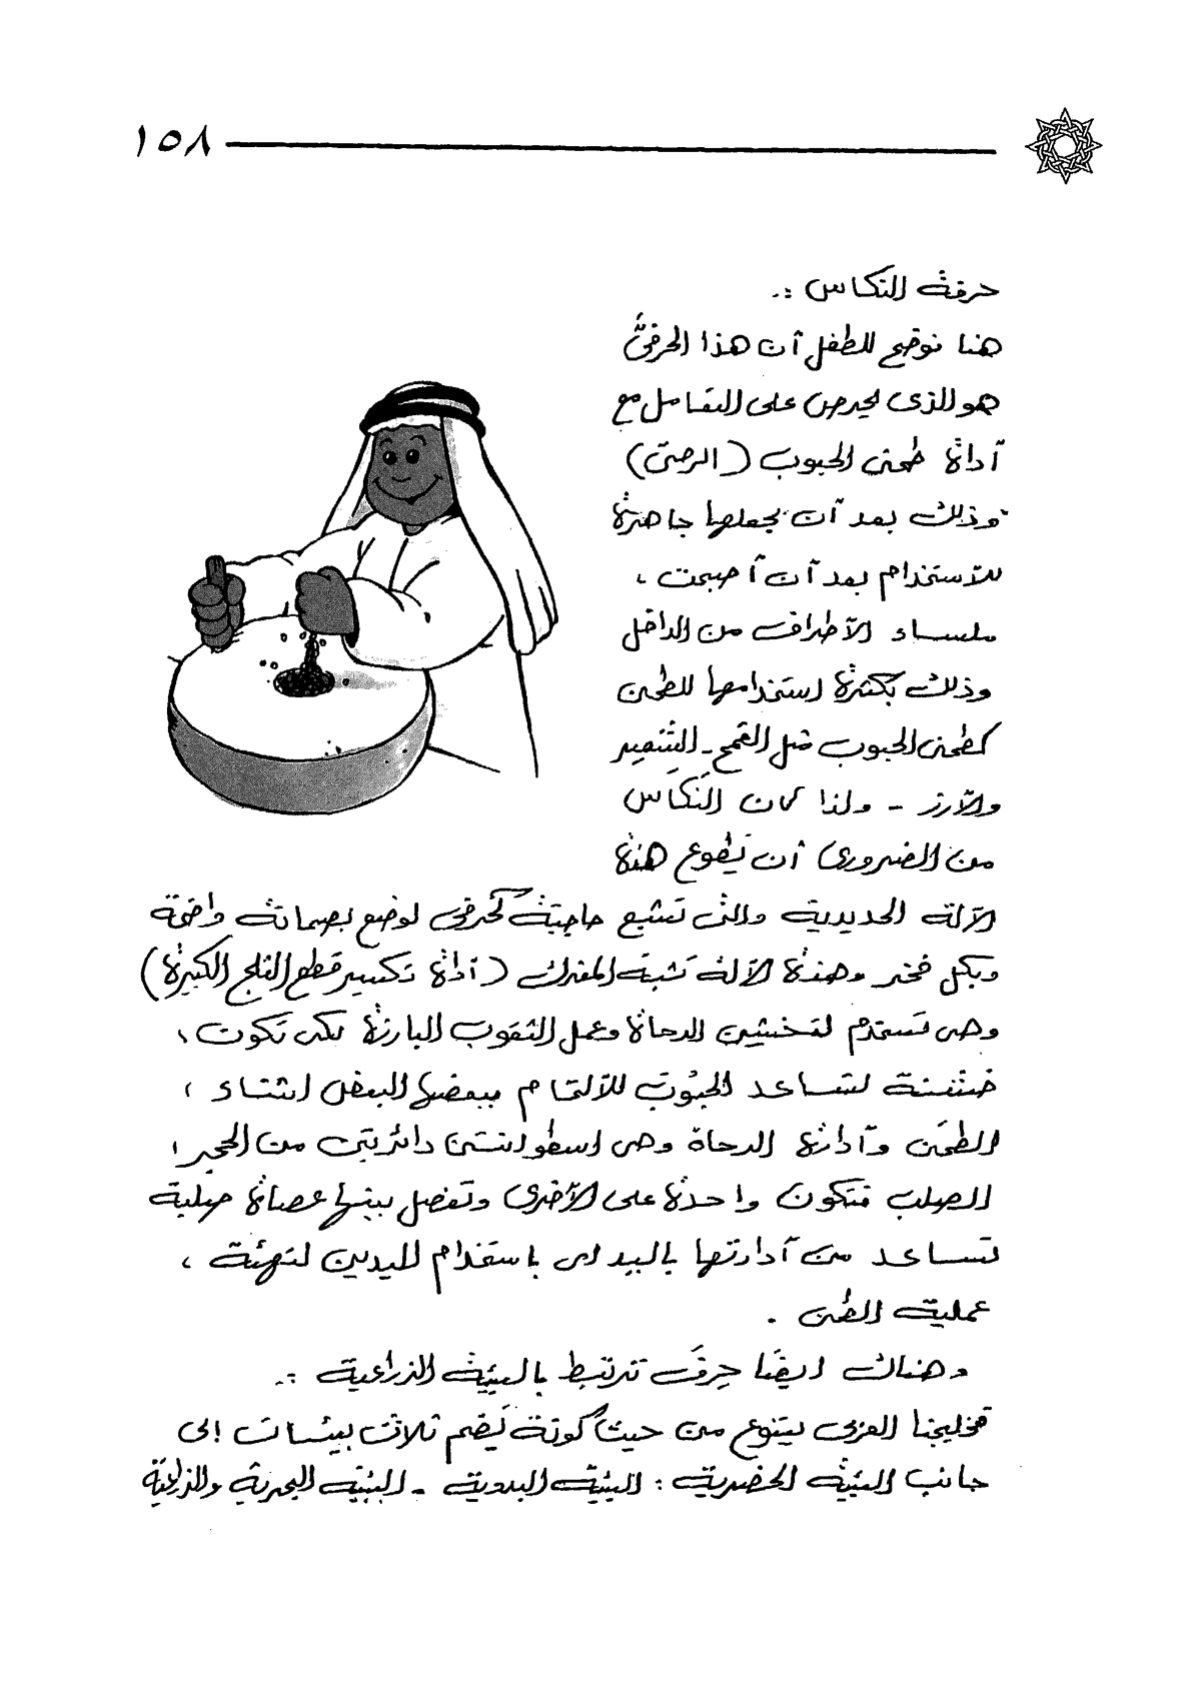 ١٥٨
حرفة النكاس :.
هنا نوضح للطفل أن هذا الحرفىَّ
هو الذى يحرص على التعامل مع
أداة طحن الحبوب (الرحى)
وذلك بعد أن يجعلها جاهزة
للأستخدام بعد أن أصبحت ،
ملساء الأطراف من الداخل
وذلك بكثرة استخدامها للطحن
كطحن الحبوب مثل القمح - الشعير
والأرز - ولذا كان النَكَاس
من الضرورى أن يطوع هذة
الآلة الحديدية والتى تشبع حاجتة كحرفى لوضع بصماتة واضحة
وبكل فخر وهذة الآلة تشبة المفرك (أداة تكسير قطع الثلج الكبيرة)
وهى تستخدم لتخشين الرحاة وعمل الثقوب البارزة لكى تكون ،
خشنة لتساعد الحبُوب للألتحام ببعضها البعض اثناء ،
الطحَن وأداتها الرحاة وهى اسطوانتين دائرتين من الحجر ،
الصلب فتكون واحدة على الأخرى وتفصل بينها عصاة صلبة
تساعد من أدارتها باليد اى باستخدام اليدين لتهئة ،
عملية الطحن .
وهناك ايضًا حِرفَ ترتبط بالبيئة الزراعية :.
فخليجنا العربى يتنوع من حيث كونة يَضم ثلاث بيئات إلى
جانب البيئة الحضرية : البيئة البدوية - البيئة البحرية والزراعية